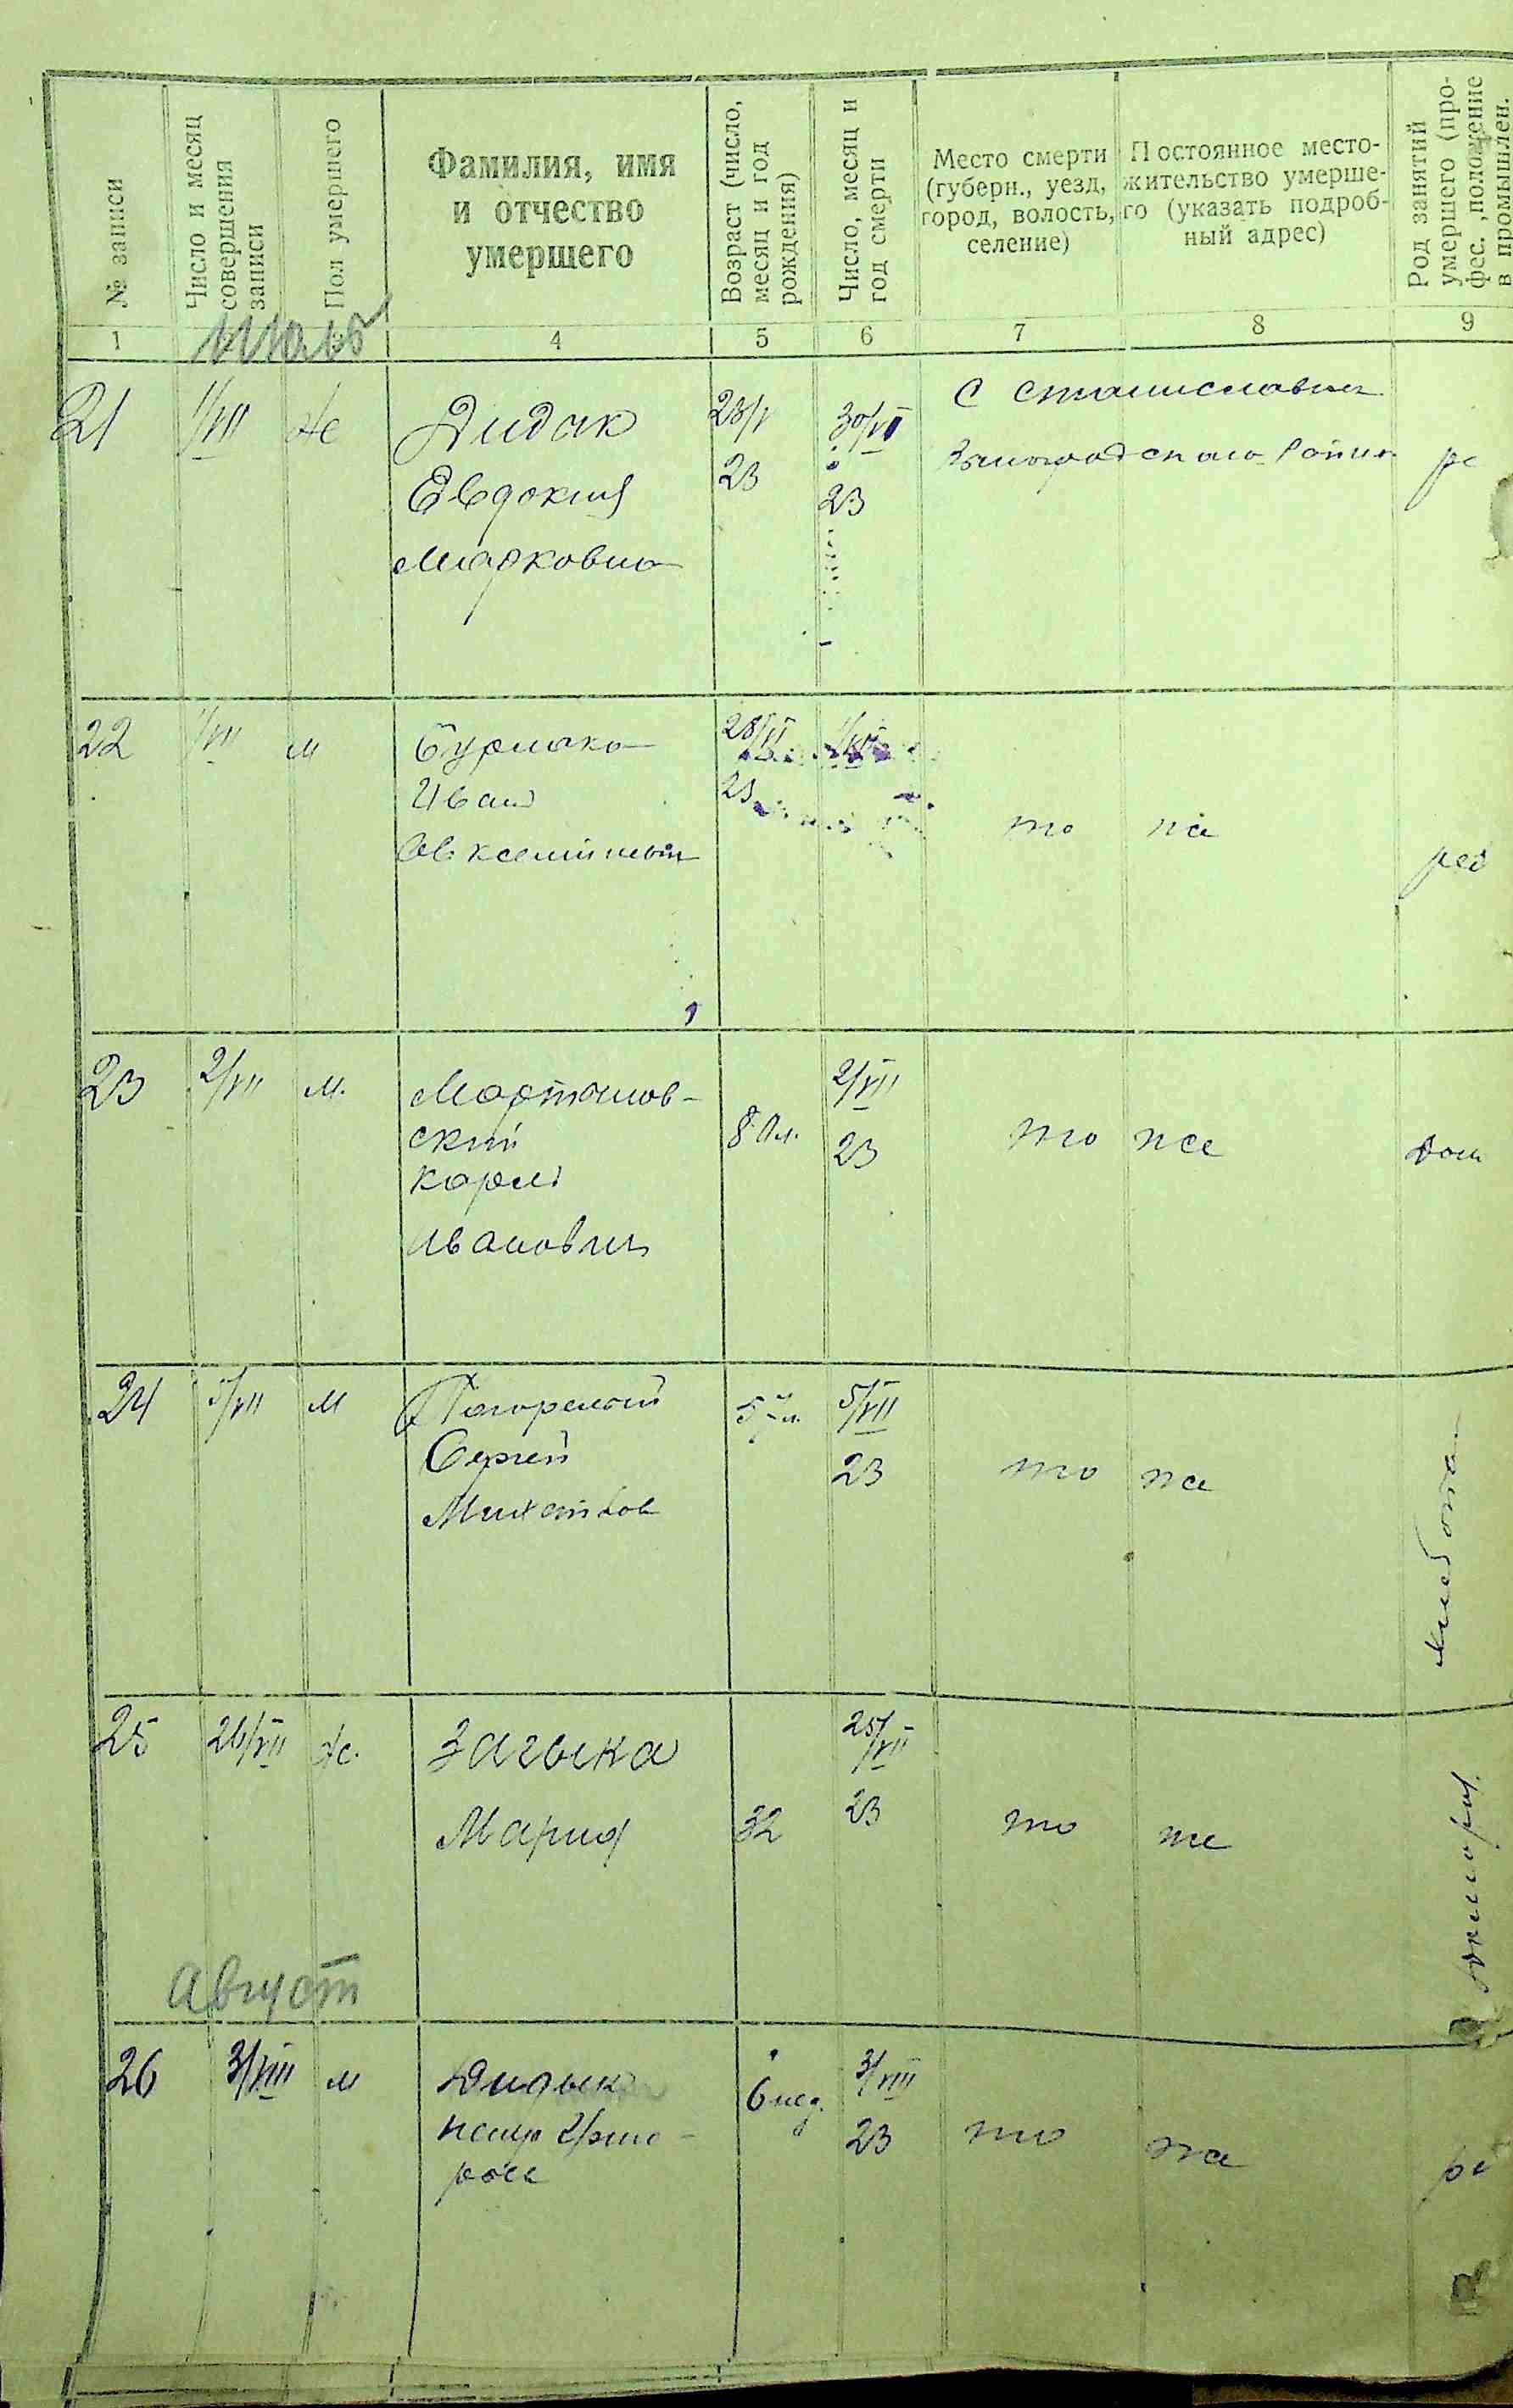 № записи
Число и месяц
совершения
записи
Пол умершего
Фамилия, имя
и отчество
умершего
Возраст (число,
месяц и год
рождения)
Число, месяц и
год смерти
Место смерти
(губерн., уезд,
город, волость,
селение)
Постоянное место-
жительство умерше-
го (указать подроб-
ный адрес)
Род занятий
умершего (про-
фес., положение
в промышлен.
1
4
5
6
7
8
9
июль
21
1/VII
ж
Дидак
Евдокия
Марковна
28/V
23
30/VI
23
с
района
22
1/VII
м
Бурлака
Иван
28/VI
23
то же
23
2/VII
м.
Мартынов-
ский
Карл
Иванович
8 м.
2/VII
23
то же
24
5/VII
м
Погорелый
Сергей
57 л.
5/VII
23
то же
25
26/VII
ж.
Загыка
Мария
32
25/VII
23
то же
август
26
3/VIII
м
Дидык
6 нед.
3/VIII
23
то же